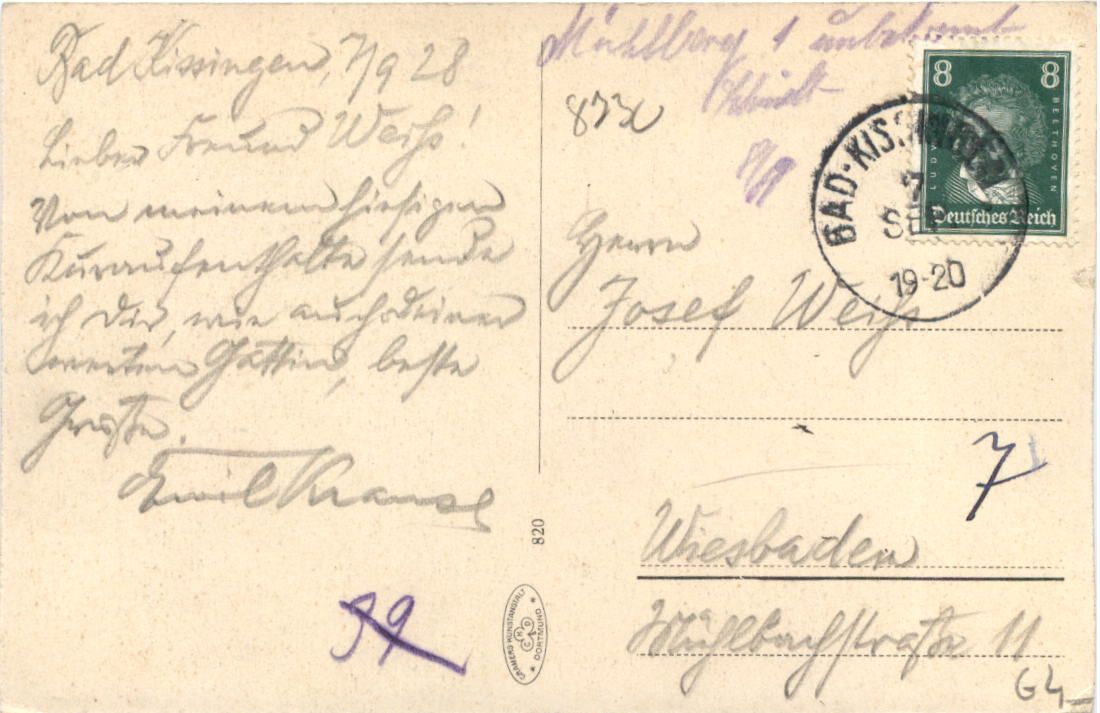 Bad Kissingen, 7/9 28
Lieber Freund Weiß!
Von meinem hiesigen
Kuraufenthalte sende
ich Dir, wie auch Deiner
werten Gattin, beste
Grüße.
Emil Krause
Mühlberg 1 unbekannt
8/9
Herrn
Josef Weiß
Wiesbaden
11
7
99
G4
820
CRAMERS KUNSTANSTALT
DORTMUND
CKD
8 8
LUDWIG
BEETHOVEN
Deutsches Reich
BAD-KISSINGEN
7
SEP
19-20